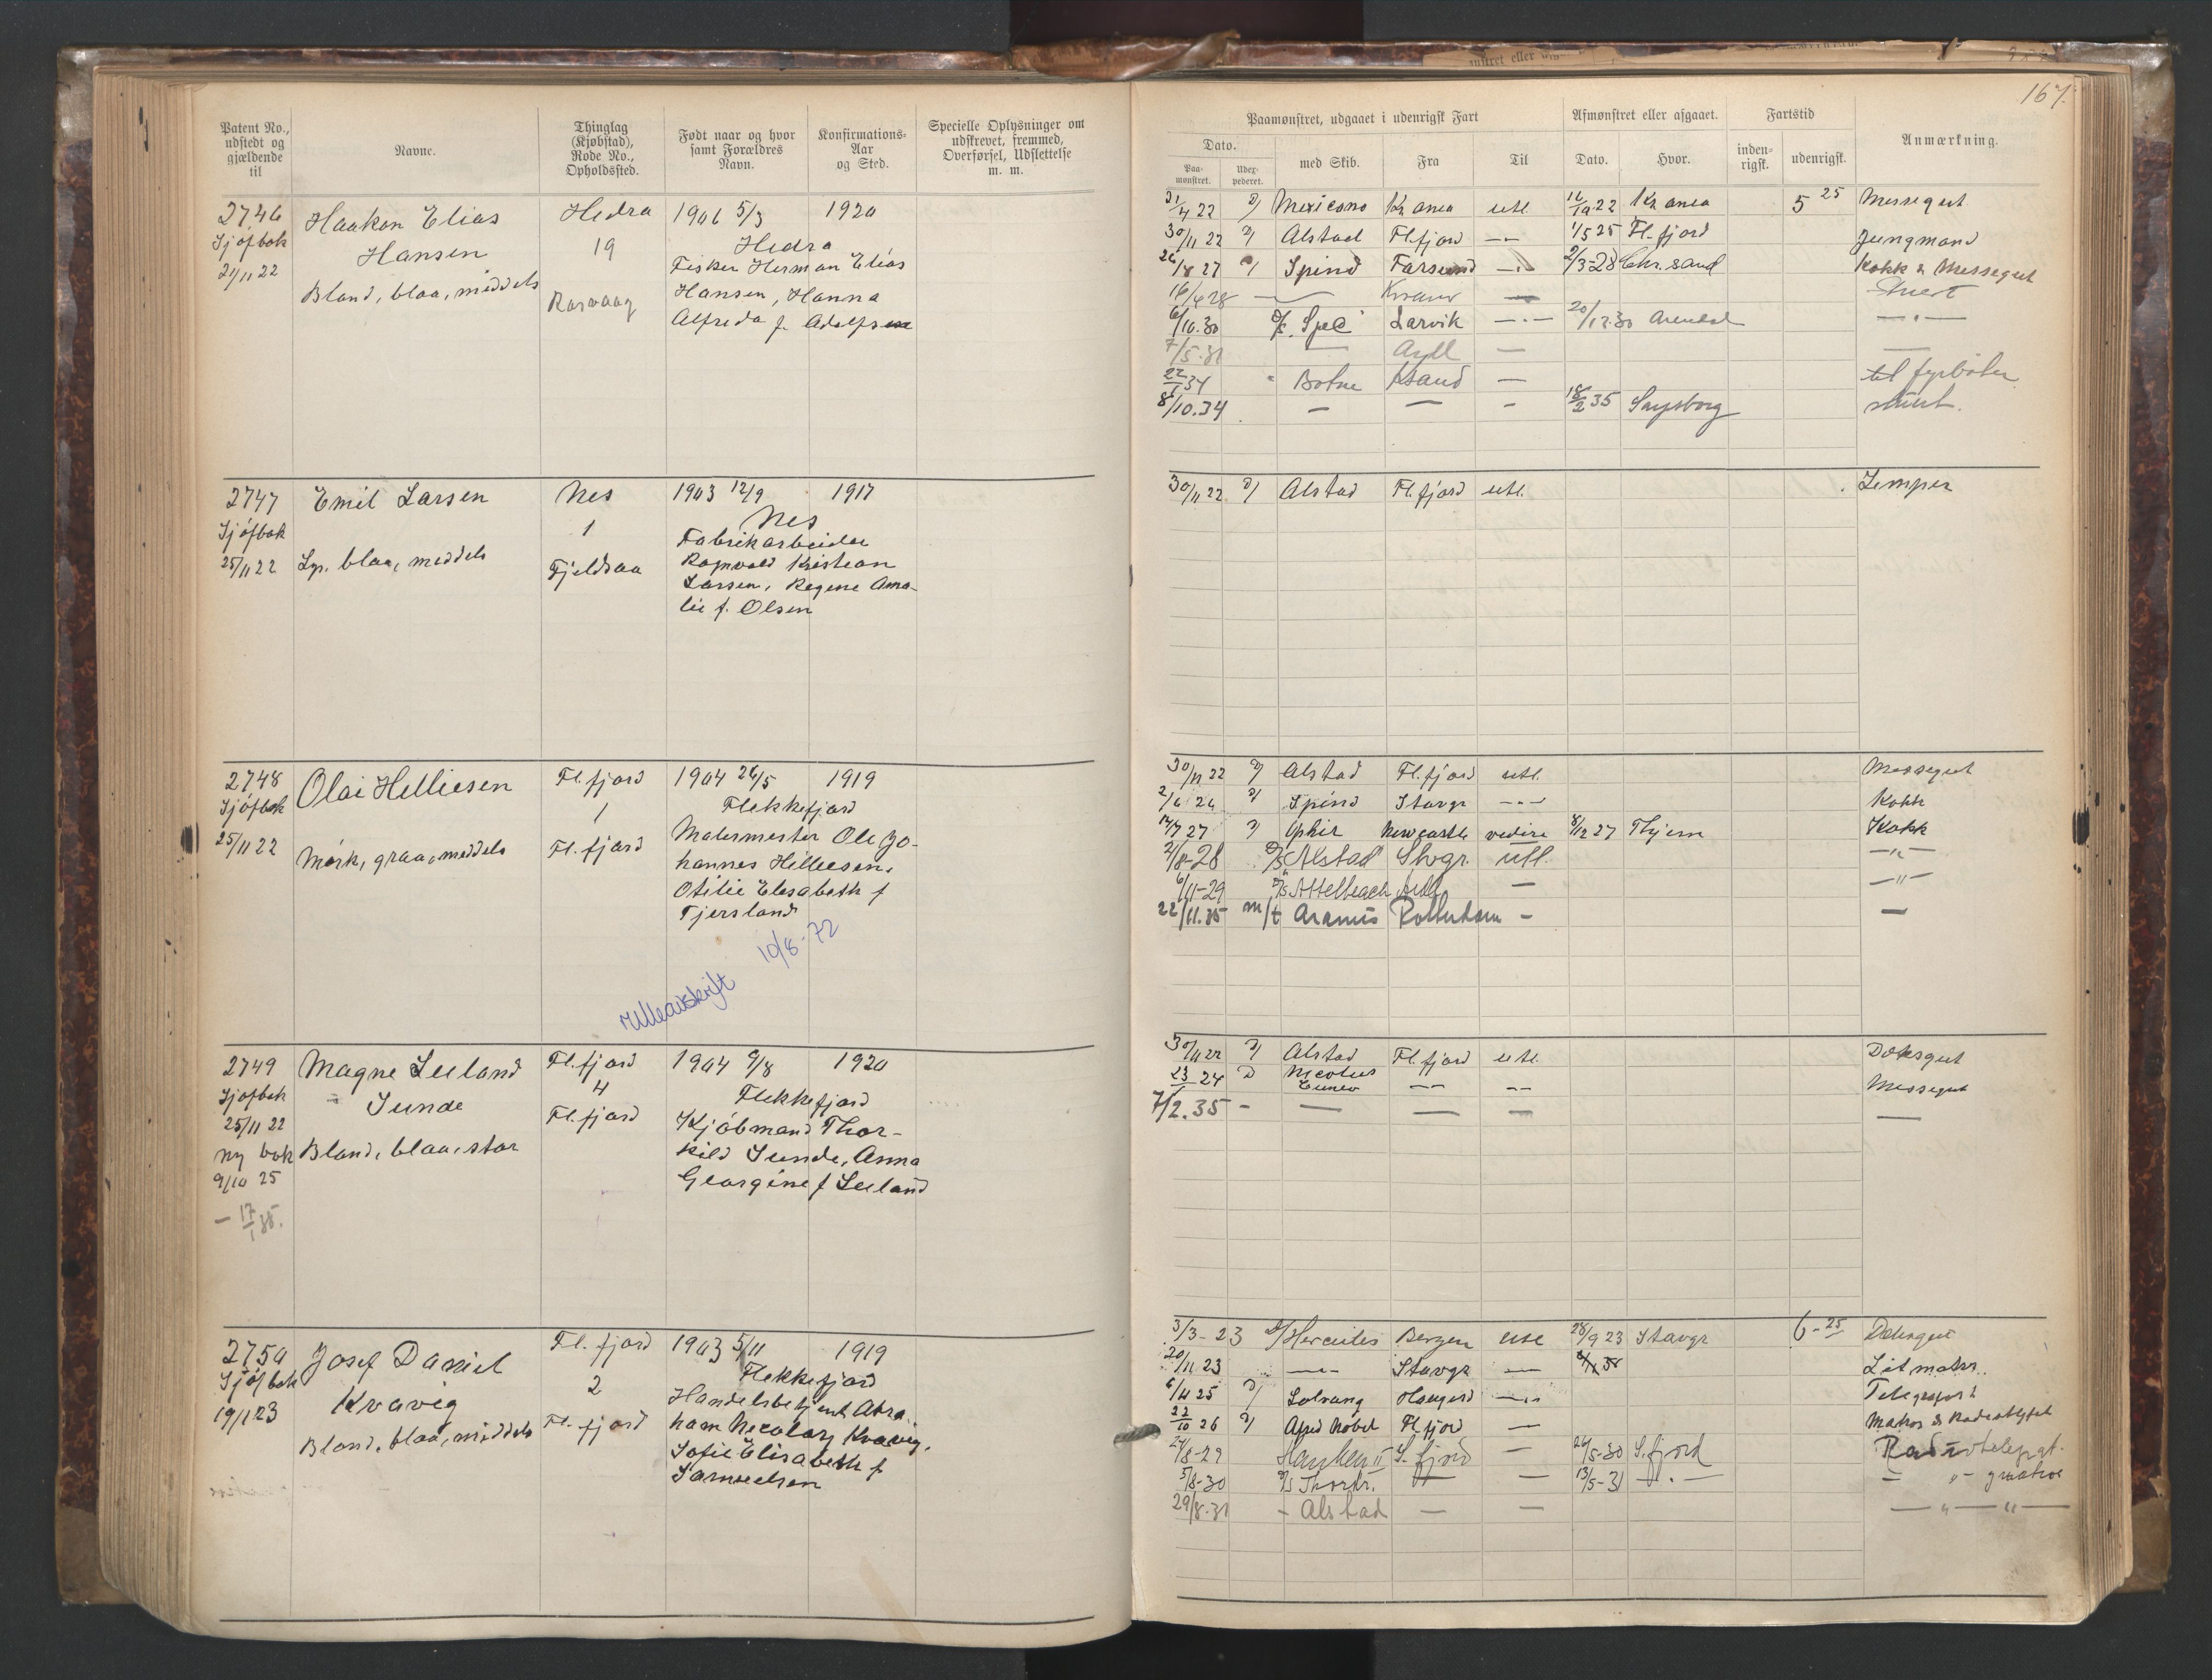 167.
Patent No., udstedt og gjældende til
Navne.
Thinglag (Kjøbstad), Rode No., Opholdssted.
Født naar og hvor samt Forældres Navn.
Konfirmations-Aar og Sted.
Specielle Oplysninger om udskrevet, fremmed, Overførsel, Udslettelse m. m.
Paamønstret, udgaaet i udenrigsk Fart
Afmønstret eller afgaaet.
Fartstid
Anmærkning.
Dato.
Paa-mønstret.
Uder-pederet.
med Skib.
Fra
Til
Dato.
Hvor.
inden-rigsk.
udenrigsk.
2746 Haakon Elias Hedra 1906 5/3 1920
Sjøfbok Hansen 19 Hedra
21/11 22 Bland, blaa, middels Rasvaag Fisker Herman Elias
Hansen, Hanna
Alfreda f. Adolfsen
21/4 22 D/ Mexicano Kr ania utl. 16/10 22 Kr ania 5 25 Messegut
30/11 22 D/ Alstad Fl.fjord — 1/5 25 Fl. fjord Jungmand
26/8 27 D/ Spind Farsund — 2/3-28 Chr.sand Kokk & Messegut
16/4 28 — —
6/10.30 D/S. Larvik — 20/12.30 Arendal —
7/5.31 — —
22/1 34 Botne Ksand — til fyrbøter
8/10.34 — — - 18/2 35 Sarpsborg stuert.
2747 Emil Larsen Nes 1903 12/9 1917
Sjøfbok 1 Nes
25/11 22 Lys. blaa, middels Fjeldsaa Fabrikarbeider
Ragnvald Kristian
Larsen, Regine Ama-
lie f. Olsen
30/11 22 D/ Alstad Fl.fjord utl. Lemper
2748 Olai Helliesen Fl.fjord 1904 26/5 1919
Sjøfbok 1 Flekkefjord
25/11 22 Mørk, graa, middels Fl.fjord Malermester Ole Jo-
hannes Helliesen,
Otilie Elisabeth f
Tjersland
Rulleavskrift 10/8-72
30/11 22 D/ Alstad Fl.fjord utl. Messegut
2/6 26 D/ Spind Stavgr — Kokk
14/7 27 D/ Ophir Newcastle vidire 8/12 27 Thjem Kokk
2/8-28 D/S Alstad Stvgr utl. —"—
6/11-29 D/S —"—
22/11.35 m/t Aramis Rotterdam — —
2749 Magne Leland Fl.fjord 1904 9/8 1920
Sjøfbok Sunde 4 Flekkefjord
25/11 22 Fl.fjord Kjøbmand Thor-
ny bok Bland, blaa, stor kild Sunde, Anna
9/10 25 Georgine f Leland
— 17/1 35.
30/11 22 D/ Alstad Fl.fjord utl. Deksgut
24 D — — Messegut
7/2.35 - — — — —
2750 Josef Daniel Fl.fjord 1903 5/11 1919
Sjøfbok Kvavig 2 Flekkefjord
19/1 23 Bland, blaa, middels Fl.fjord Handelsbetjent Abra-
ham Nicolay Kvavig,
Sofie Elisabeth f
Samuelsen
3/3-23 D/ Hercules Bergen utl 28/9 23 Stavgr 6-25 Deksgut
20/11 23 — Stavgr — Letmatr.
6/4 25 D/ Solvang Haugesd — Telegrafist
22/10 26 D/ Alfred Nobel Fl.fjord — Matros & Radiotelegfst
24/8-29 Hauken II S.fjord — 24/5-30 S.fjord Radiotelegraf.
5/8-30 D/S — — 13/5-31 —"— — "
29/8-31 - Alstad — — —"—"—